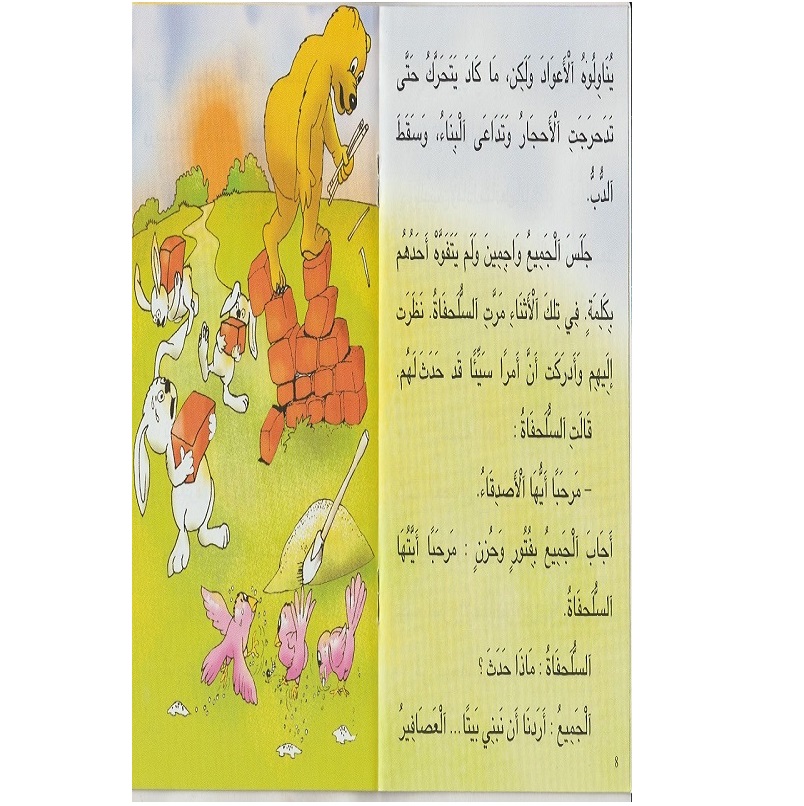 يُنَاوِلُوهُ ٱلْأَعوَادَ وَلَكِن، مَا كَادَ يَتَحَرَّكُ حَتَّى
تَدَحرَجَتِ ٱلْأَحجَارُ وَتَدَاعَى ٱلْبِنَاءُ، وَسَقَطَ
ٱلدُّبُّ.
جَلَسَ ٱلْجَمِيعُ وَاجِمِينَ وَلَم يَتَفَوَّهْ أَحَدُهُم
بِكَلِمَةٍ. فِي تِلكَ ٱلْأَثنَاءِ مَرَّتِ ٱلسُّلَحفَاةُ. نَظَرَت
إِلَيهِم وَأَدرَكَت أَنَّ أَمرًا سَيِّئًا قَد حَدَثَ لَهُم.
قَالَتِ ٱلسُّلَحفَاةُ :
– مَرحَبًا أَيُّهَا ٱلْأَصدِقَاءُ.
أَجَابَ ٱلْجَمِيعُ بِفُتُورٍ وَحُزنٍ : مَرحَبًا أَيَّتُهَا
ٱلسُّلَحفَاةُ.
ٱلسُّلَحفَاةُ : مَاذَا حَدَثَ ؟
ٱلْجَمِيعُ : أَرَدنَا أَن نَبنِي بَيتًا... ٱلْعَصَافِيرُ
8